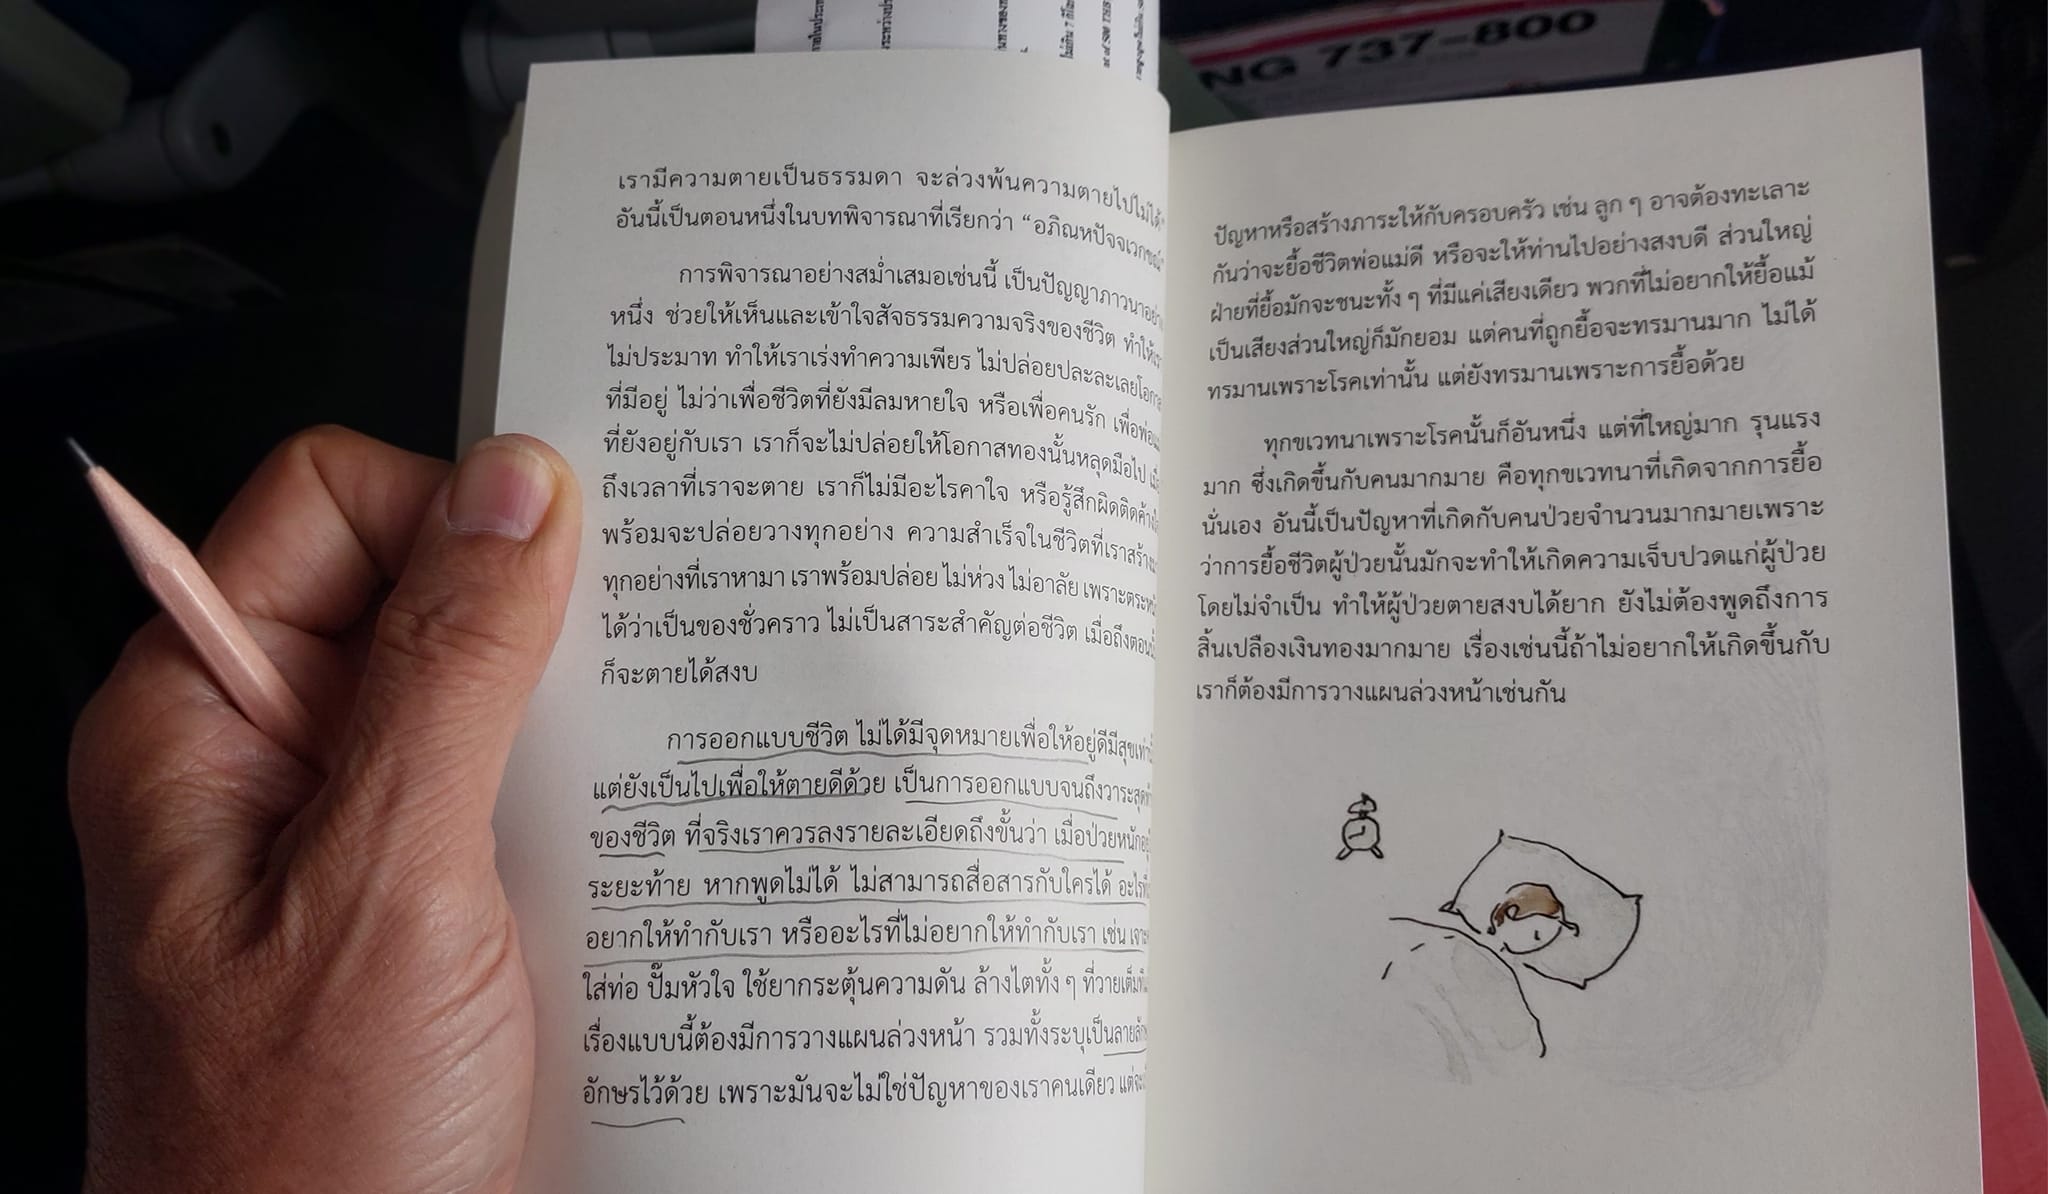 NG 737-800
เรามีความตายเป็นธรรมดา จะล่วงพ้นความตายไปไม่ได้"
อันนี้เป็นตอนหนึ่งในบทพิจารณาที่เรียกว่า "อภิณหปัจจเวกขณ์"
การพิจารณาอย่างสม่ำเสมอเช่นนี้ เป็นปัญญาภาวนาอย่าง
หนึ่ง ช่วยให้เห็นและเข้าใจสัจธรรมความจริงของชีวิต
ไม่ประมาท ทำให้เราเร่งทำความเพียร ไม่ปล่อยปละละเลยโอกาส
ที่มีอยู่ ไม่ว่าเพื่อชีวิตที่ยังมีลมหายใจ หรือเพื่อคนรัก
ที่ยังอยู่กับเรา เราก็จะไม่ปล่อยให้โอกาสทองนั้นหลุดมือไป
ถึงเวลาที่เราจะตาย เราก็ไม่มีอะไรคาใจ หรือรู้สึกผิดติดค้าง
พร้อมจะปล่อยวางทุกอย่าง ความสำเร็จในชีวิตที่เราสร้าง
ทุกอย่างที่เราหามา เราพร้อมปล่อย ไม่ห่วง ไม่อาลัย
ได้ว่าเป็นของชั่วคราว ไม่เป็นสาระสำคัญต่อชีวิต เมื่อถึงตอน
ก็จะตายได้สงบ
การออกแบบชีวิต ไม่ได้มีจุดหมายเพื่อให้อยู่ดีมีสุข
แต่ยังเป็นไปเพื่อให้ตายดีด้วย เป็นการออกแบบจนถึงวาระ
ของชีวิต ที่จริงเราควรลงรายละเอียดถึงขั้นว่า เมื่อป่วยหนัก
ระยะท้าย หากพูดไม่ได้ ไม่สามารถสื่อสารกับใครได้
อยากให้ทำกับเรา หรืออะไรที่ไม่อยากให้ทำกับเรา เช่น
ใส่ท่อ ปั๊มหัวใจ ใช้ยากระตุ้นความดัน ล้างไตทั้ง ๆ
เรื่องแบบนี้ต้องมีการวางแผนล่วงหน้า รวมทั้งระบุเป็น
อักษรไว้ด้วย เพราะมันจะไม่ใช่ปัญหาของเราคนเดียว
ปัญหาหรือสร้างภาระให้กับครอบครัว เช่น ลูก ๆ อาจต้องทะเลาะ
กันว่าจะยื้อชีวิตพ่อแม่ดี หรือจะให้ท่านไปอย่างสงบดี ส่วนใหญ่
ฝ่ายที่ยื้อมักจะชนะทั้ง ๆ ที่มีแค่เสียงเดียว พวกที่ไม่อยากให้ยื้อแม้
เป็นเสียงส่วนใหญ่ก็มักยอม แต่คนที่ถูกยื้อจะทรมานมาก ไม่ได้
ทรมานเพราะโรคเท่านั้น แต่ยังทรมานเพราะการยื้อด้วย
ทุกขเวทนาเพราะโรคนั้นก็อันหนึ่ง แต่ที่ใหญ่มาก รุนแรง
มาก ซึ่งเกิดขึ้นกับคนมากมาย คือทุกขเวทนาที่เกิดจากการยื้อ
นั่นเอง อันนี้เป็นปัญหาที่เกิดกับคนป่วยจำนวนมากมายเพราะ
ว่าการยื้อชีวิตผู้ป่วยนั้นมักจะทำให้เกิดความเจ็บปวดแก่ผู้ป่วย
โดยไม่จำเป็น ทำให้ผู้ป่วยตายสงบได้ยาก ยังไม่ต้องพูดถึงการ
สิ้นเปลืองเงินทองมากมาย เรื่องเช่นนี้ถ้าไม่อยากให้เกิดขึ้นกับ
เราก็ต้องมีการวางแผนล่วงหน้าเช่นกัน